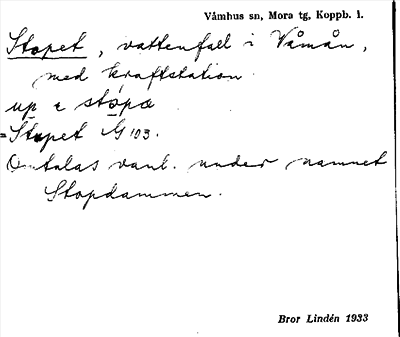 Våmhus sn, Mora tg, Koppb. l.
Stopet, vattenfall i Våmån,
med kraftstation.
up e stopa
=Stupet G 103.
Omtalas vanl. under namnet
Stopdammen.
Bror Lindén 1933